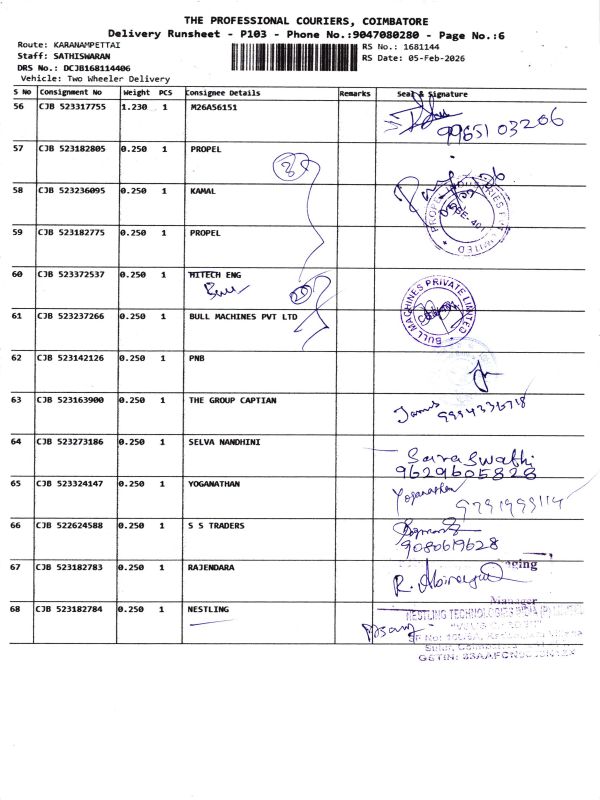 THE PROFESSIONAL COURIERS, COIMBATORE
Delivery Runsheet - P103 - Phone No.:9047080280 - Page No.:6
Route: KARANAMPETTAI
RS No.: 1681144
Staff: SATHISWARAN
RS Date: 05-Feb-2026
DRS No.: DCJB168114406
Vehicle: Two Wheeler Delivery
S No Consignment No Weight PCS Consignee Details Remarks Seal & Signature
56 CJB 523317755 1.230 1 M26A56151
9965103206
57 CJB 523182805 0.250 1 PROPEL
58 CJB 523236095 0.250 1 KAMAL
59 CJB 523182775 0.250 1 PROPEL
60 CJB 523372537 0.250 1 HITECH ENG
BULL MACHINES PRIVATE LIMITED
61 CJB 523237266 0.250 1 BULL MACHINES PVT LTD
62 CJB 523142126 0.250 1 PNB
63 CJB 523163900 0.250 1 THE GROUP CAPTIAN
64 CJB 523273186 0.250 1 SELVA NANDHINI
Saraswathi
9629605828
65 CJB 523324147 0.250 1 YOGANATHAN
Yoganathan
66 CJB 522624588 0.250 1 S S TRADERS
9080619628
67 CJB 523182783 0.250 1 RAJENDARA
68 CJB 523182784 0.250 1 NESTLING
Manager
NESTLING TECHNOLOGIES INDIA (P)